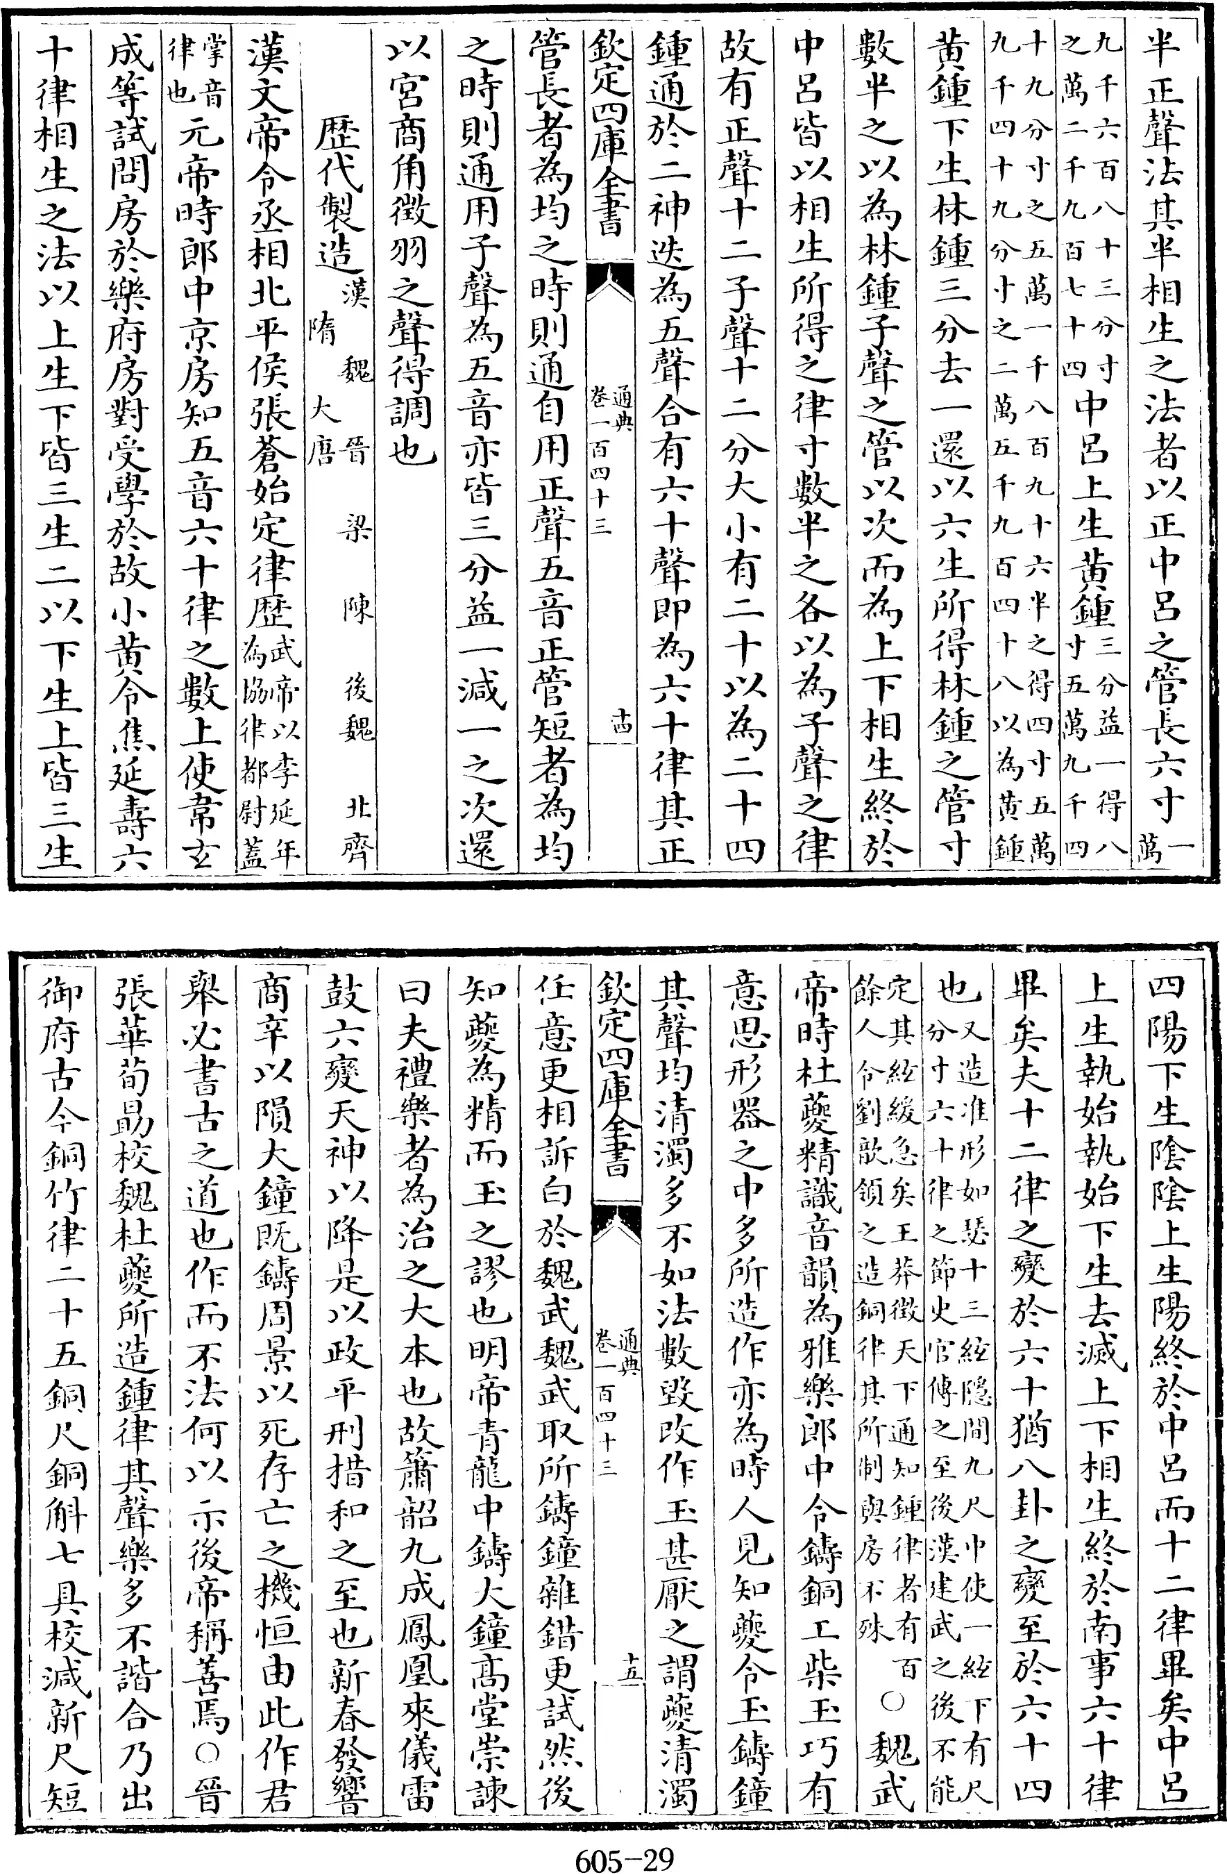 半正聲法其半相生之法者以正中呂之管長六寸一萬
九千六百八十三分寸之萬二千九百七十四中呂上生黃鍾三分益一得八寸五萬九千四
十九分寸之五萬一千八百九十六半之得四寸五萬九千四十九分寸之二萬五千九百四十八以為黃鍾
黃鍾下生林鍾三分去一還以六生所得林鍾之管寸
數半之以為林鍾子聲之管以次而為上下相生終於
中呂皆以相生所得之律寸數半之各以為子聲之律
故有正聲十二子聲十二分大小有二十以為二十四
鍾通於二神迭為五聲合有六十聲即為六十律其正
欽定四庫全書 通典 卷一百四十三 十四
管長者為均之時則通自用正聲五音正管短者為均
之時則通用子聲為五音亦皆三分益一減一之次還
以宮商角徵羽之聲得調也
歷代製造漢 魏 晉 梁 陳 後魏 北齊 隋 大唐
漢文帝令丞相北平侯張蒼始定律歷武帝以李延年為協律都尉蓋
掌音律也元帝時郎中京房知五音六十律之數上使韋玄
成等試問房於樂府房對受學於故小黃令焦延壽六
十律相生之法以上生下皆三生二以下生上皆三生
四陽下生陰陰上生陽終於中呂而十二律畢矣中呂
上生執始執始下生去滅上下相生終於南事六十律
畢矣夫十二律之變於六十猶八卦之變至於六十四
也又造准形如瑟十三絃隱間九尺中使一絃下有尺分寸六十律之節史官傳之至後漢建武之後不能
定其絃緩急矣王莽徵天下通知鍾律者有百餘人令劉歆領之造銅律其所制與房不殊○魏武
帝時杜夔精識音韻為雅樂郎中令鑄銅工柴玉巧有
意思形器之中多所造作亦為時人見知夔令玉鑄鐘
其聲均清濁多不如法數毀改作玉甚厭之謂夔清濁
欽定四庫全書 通典 卷一百四十三 十五
任意更相訴白於魏武魏武取所鑄鐘雜錯更試然後
知夔為精而玉之謬也明帝青龍中鑄大鐘高堂崇諫
曰夫禮樂者為治之大本也故簫韶九成鳳凰來儀雷
鼓六變天神以降是以政平刑措和之至也新春發響
商辛以隕大鐘既鑄周景以死存亡之機恒由此作君
舉必書古之道也作而不法何以示後帝稱善焉○晉
張華荀勗校魏杜夔所造鍾律其聲樂多不諧合乃出
御府古今銅竹律二十五銅尺銅斛七具校減新尺短
605-29